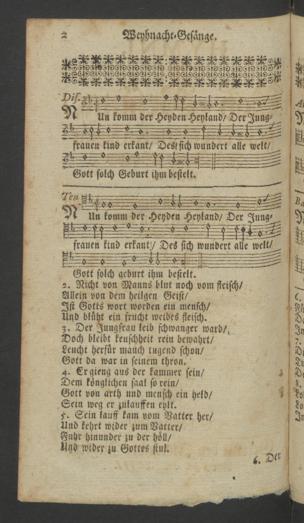 2 Weyhnacht-Gesänge.
Dis.
Nun komm der Heyden Heyland/ Der Jung-
frauen kind erkant/ Des sich wundert alle welt/
Gott solch Geburt ihm bestelt.
Ten
Nun komm der Heyden Heyland/ Der Jung-
frauen kind erkant/ Des sich wundert alle welt/
Gott solch geburt ihm bestelt.
2. Nicht von Manns blut noch vom fleisch/
Allein von dem heilgen Geist/
Ist Gotts wort worden ein mensch/
Und blüht ein frucht weibes fleisch.
3. Der Jungfrau leib schwanger ward/
Doch bleibt keuschheit rein bewahrt/
Leucht herfür manch tugend schon/
Gott da war in seinem thron.
4. Er gieng aus der kammer sein/
Dem königlichen saal so rein/
Gott von arth und mensch ein held/
Sein weg er zulauffen eylt.
5. Sein lauff kam vom Vatter her/
Und kehrt wider zum Vatter/
Fuhr hinunder zu der höll/
Und wider zu Gottes stul.
6. Der